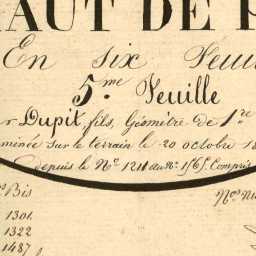 HAUT DE P
En six Feuil
5.me Feuille
r Dupit, fils, Géomètre de 1.re
minée sur le terrain le 20 octobre 18
depuis le N.o 1211 au N.o 1565. Compris
Bis
N.os Nu
1301.
1322
1487